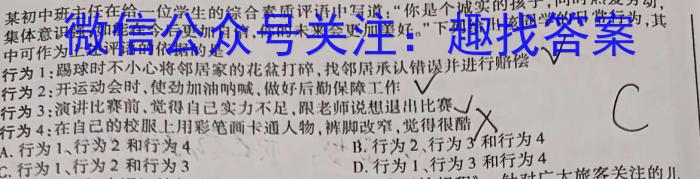 某初中班主任在给一位学生的综合素质评语中写道:"你是个诚实的孩子,
集体意识
微信公众号关注:趣找答案
中可作为
行为1:踢球时不小心将邻居家的花盆打碎,找邻居承认错误并进行赔偿
行为2:开运动会时,使劲加油呐喊,做好后勤保障工作
行为3:演讲比赛前,觉得自己实力不足,跟老师说想退出比赛
行为4:在自己的校服上用彩笔画卡通人物,裤脚改窄,觉得很酷
C
A. 行为1、行为2和行为4 B. 行为2、行为3和行为4
C. 行为1、行为2和行为3 D. 行为1、行为3和行为4
针对广大旅客关注的儿